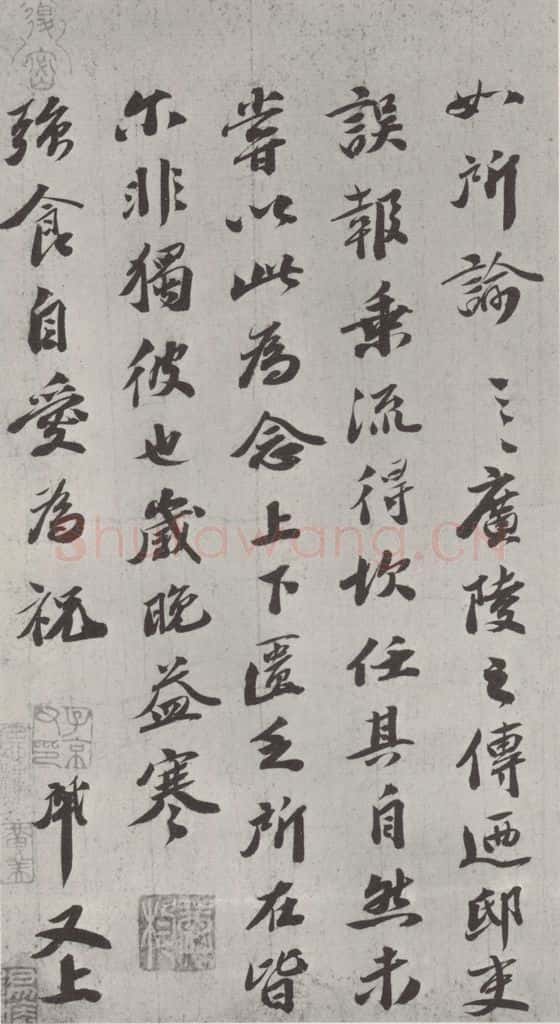 如所諭三三廣陵之傳迺邸吏
誤報乗流得坎任其自然未
嘗以此為念上下匱乏所在皆
尓非獨彼也歲晚益寒
強食自愛為祝 又上
shufawang.CN